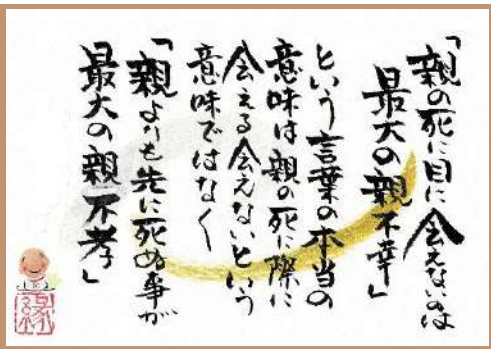 「親の死に目に会えないのは
最大の親不幸」
という言葉の本当の
意味は親の死に際に
会える会えないという
意味ではなく
「親よりも先に死ぬ事が
最大の親不孝」
縁